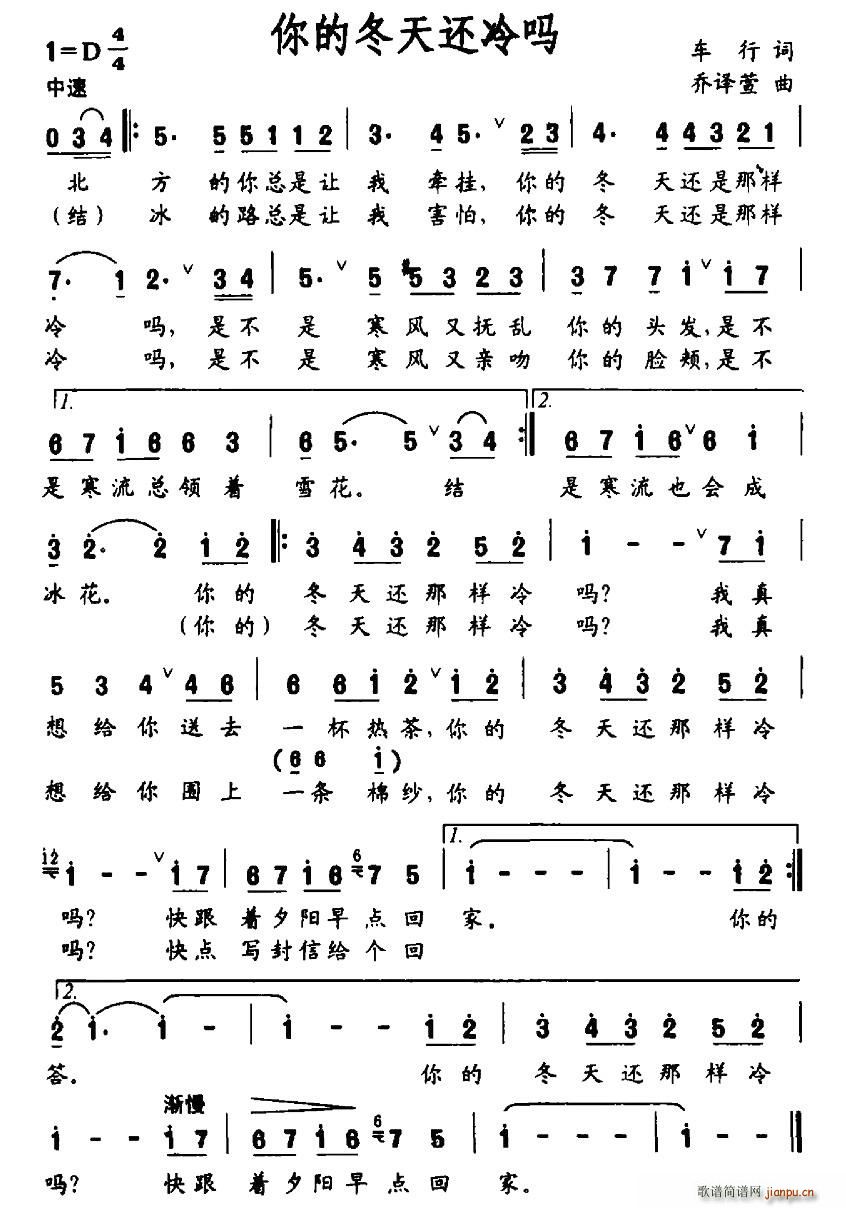 你的冬天还冷吗
1=D 4/4
车行 词
中速
乔译萱 曲
0 3 4 5· 5 5 1 1 1 2 3· 4 5· ∨ 2 3 4· 4 4 3 2 2 1
北方的你总是让我牵挂,你的冬天还是那样
(结)冰的路总是让我害怕,你的冬天还是那样
7· 1 2· ∨ 3 4 5· ∨ 5 #5 3 2 3 3 7 7 1 ∨ 1 7
冷吗,是不是寒风又抚乱你的头发,是不
冷吗,是不是寒风又亲吻你的脸颊,是不
1. 2.
6 7 1 6 6 3 6 5· 5 ∨ 3 4 6 7 1 6 ∨ 6 1
是寒流总领着雪花。结是寒流也会成
3 2· 2 1 2 3 4 3 2 5 2 1 - - ∨ 7 1
冰花。你的冬天还那样冷吗?我真
(你的)冬天还那样冷吗?我真
5 3 4 ∨ 4 6 6 6 1 2 ∨ 1 2 3 4 3 2 5 2
想给你送去一杯热茶,你的冬天还那样冷
(6 6 1)
想给你围上一条棉纱,你的冬天还那样冷
1.
12 1 - - ∨ 1 7 6 7 1 6 6 7 5 1 - - - 1 - - 1 2
吗?快跟着夕阳早点回家。你的
吗?快点写封信给个回
2.
2 1· 1 - - 1 - - 1 2 3 4 3 2 5 2
答。你的冬天还那样冷
渐慢
1 - - 1 7 6 7 1 6 6 7 5 1 - - - 1 - -
吗?快跟着夕阳早点回家。
歌谱简谱网 jianpu.cn